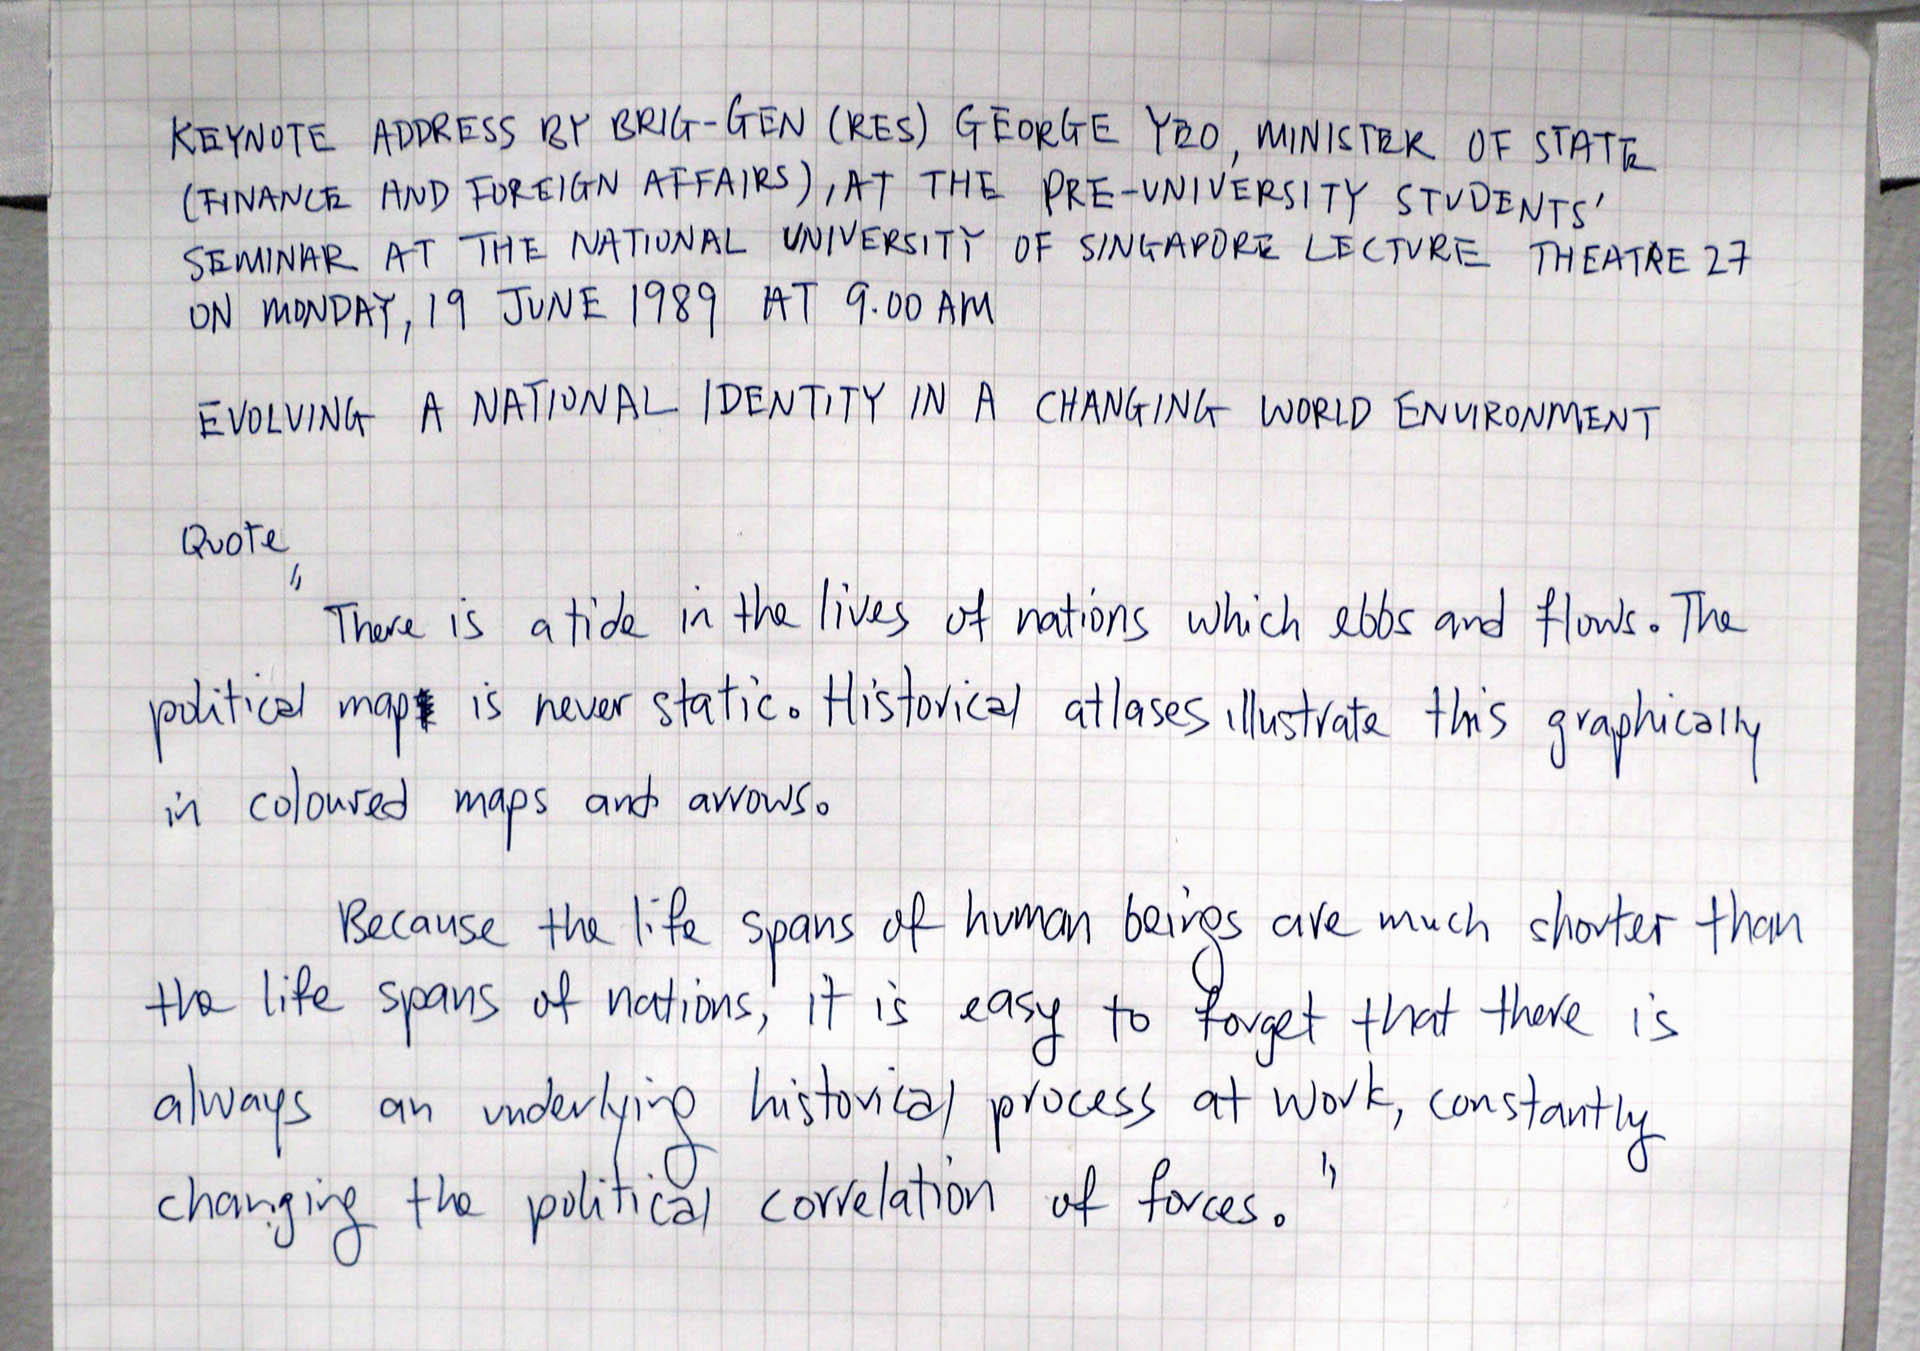 KEYNOTE ADDRESS BY BRIG-GEN (RES) GEORGE YEO, MINISTER OF STATE
(FINANCE AND FOREIGN AFFAIRS), AT THE PRE-UNIVERSITY STUDENTS'
SEMINAR AT THE NATIONAL UNIVERSITY OF SINGAPORE LECTURE THEATRE 27
ON MONDAY, 19 JUNE 1989 AT 9.00 AM
EVOLVING A NATIONAL IDENTITY IN A CHANGING WORLD ENVIRONMENT
Quote
"There is a tide in the lives of nations which ebbs and flows. The
political map is never static. Historical atlases illustrate this graphically
in coloured maps and arrows.
Because the life spans of human beings are much shorter than
the life spans of nations, it is easy to forget that there is
always an underlying historical process at work, constantly
changing the political correlation of forces."